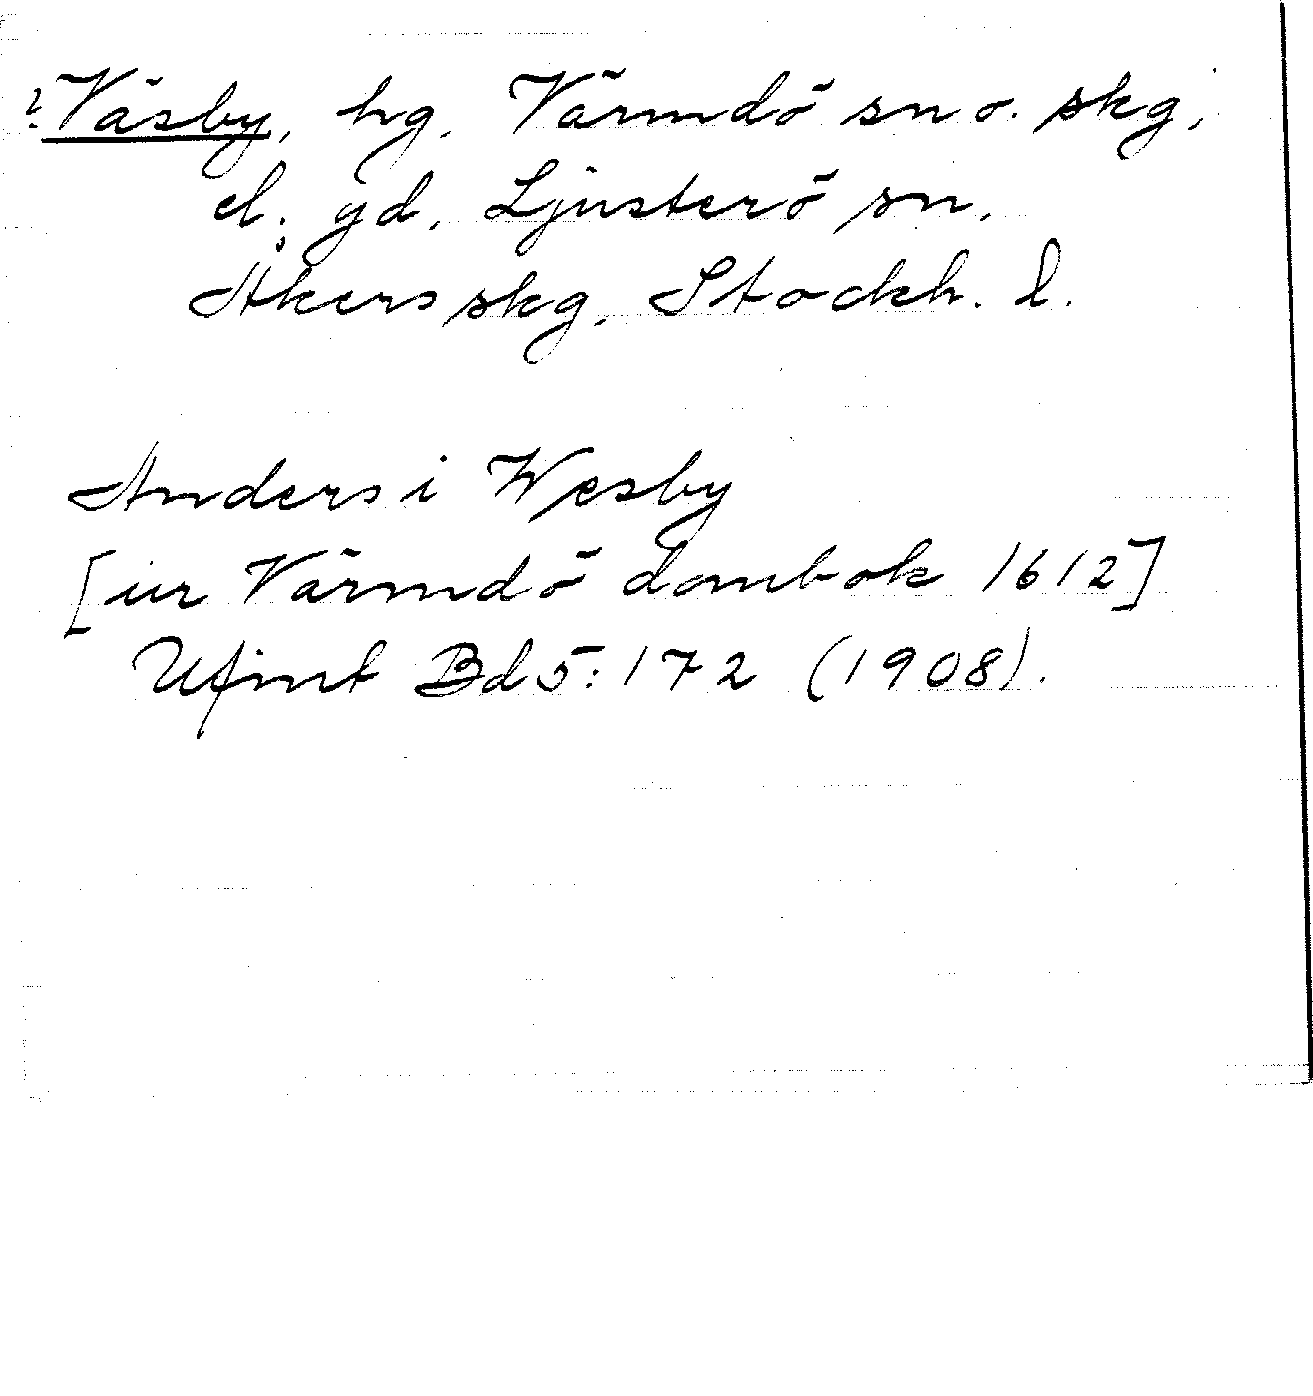 ? Väsby, hg, Värmdö sn o. skg,
el. gd, Ljusterö sn,
Åkers skg, Stockh. l.
Anders i Wesby
[ur Värmdö dombok 1612]
Ufmt Bd 5: 172 (1908).